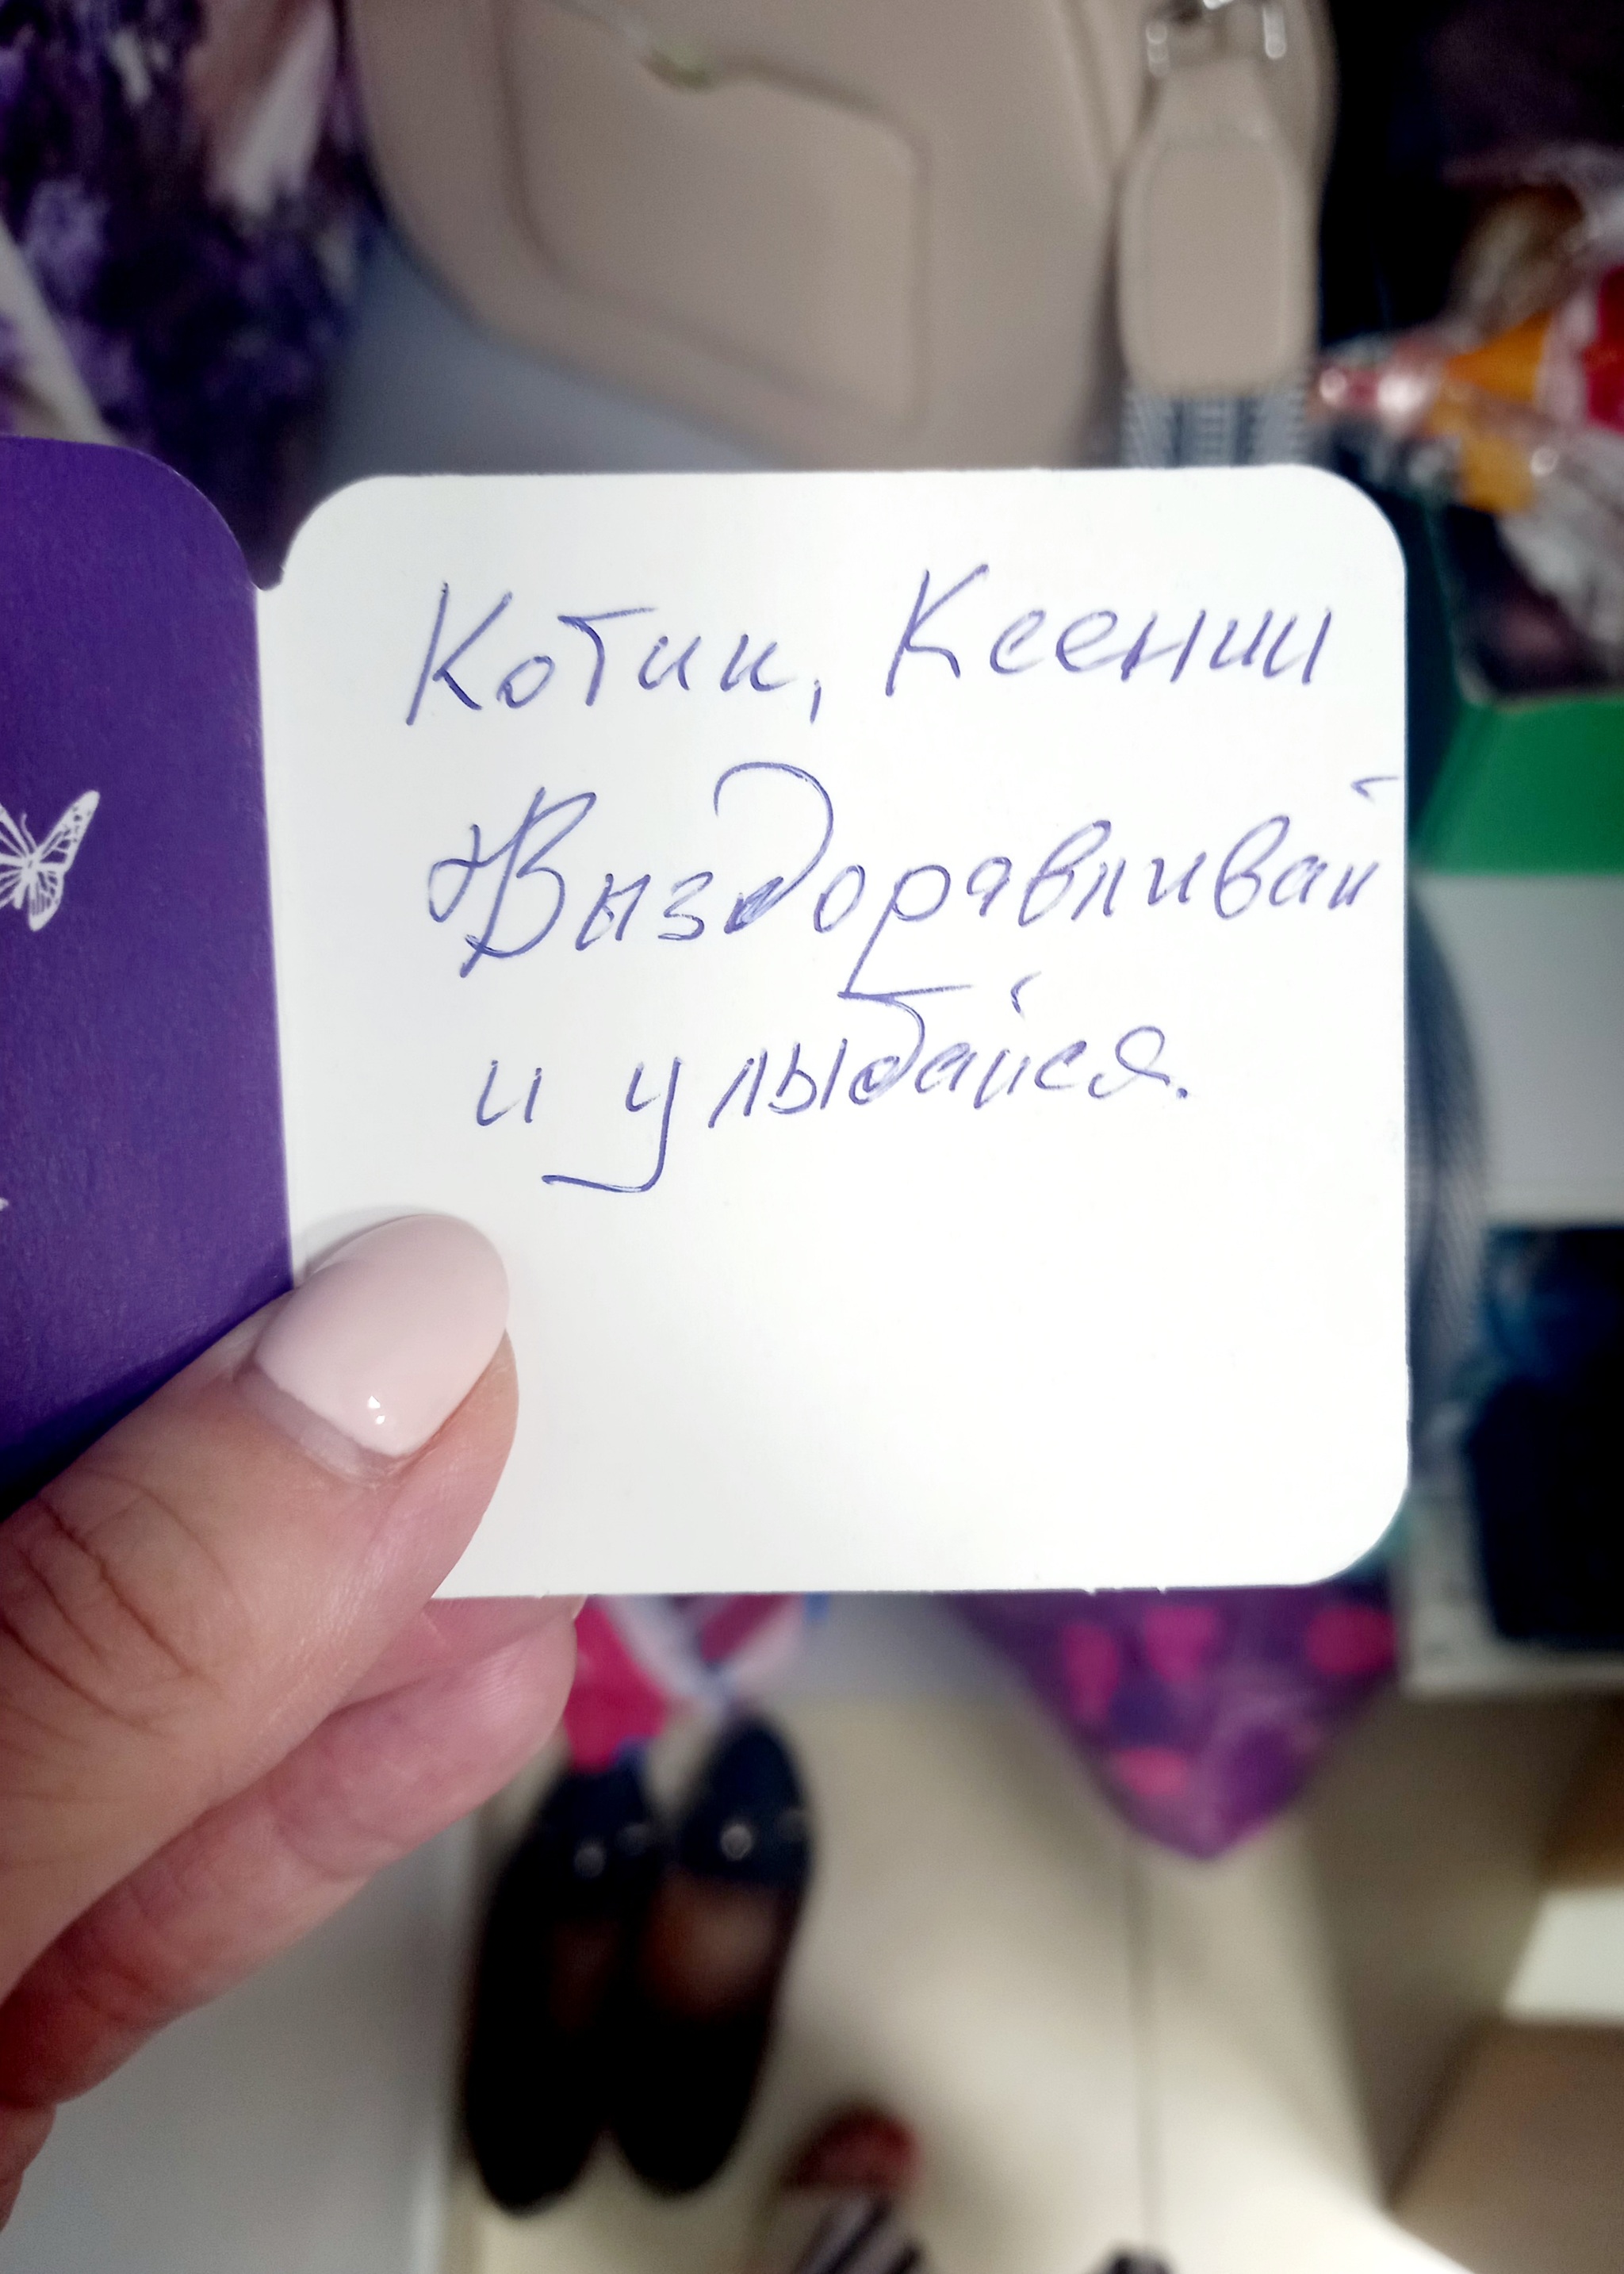 Котик, Ксении
Выздоравливай
и улыбайся.